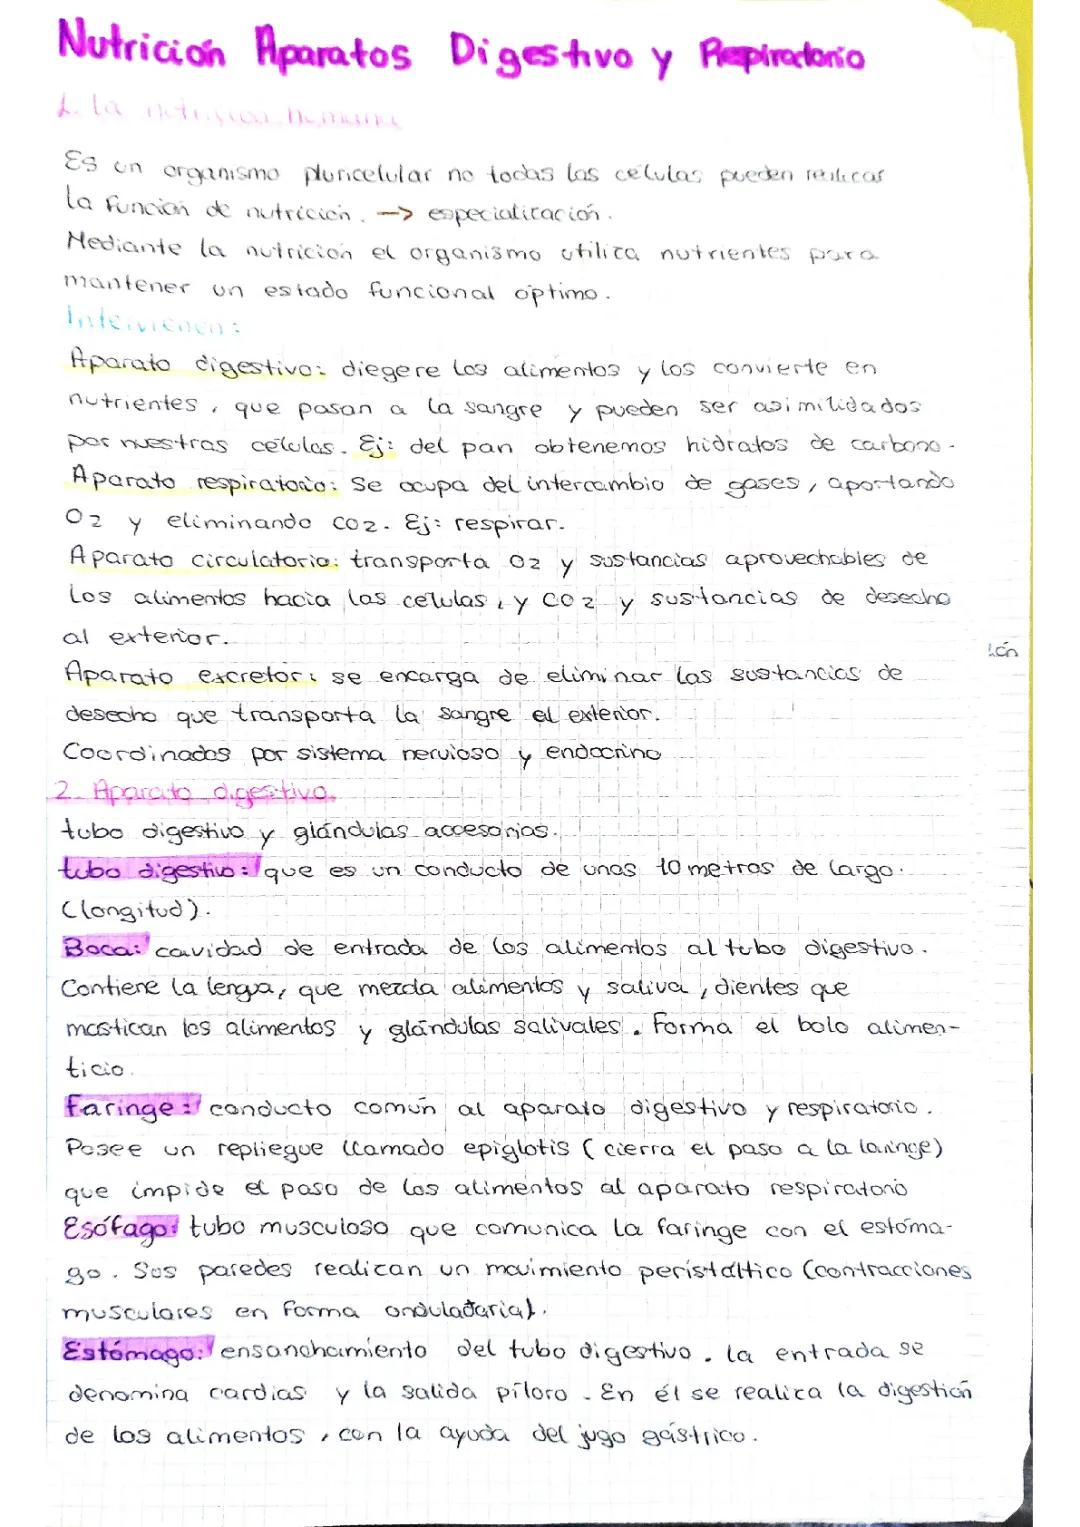 Nutrición Aparatos Digestivo y Respiratorio
1. La nutrición humana
Es un organismo pluricelular no todas las células pueden realicar
la función de nutrición. -> especialitación.
Mediante la nutrición el organismo utilica nutrientes para
mantener un estado funcional óptimo.
Intervienen:
Aparato digestivo: diegere los alimentos y los convierte en
nutrientes, que pasan a la sangre y pueden ser asimilidados
por nuestras células. Ej: del pan obtenemos hidratos de carbono.
Aparato respiratorio: Se ocupa del intercambio de gases, aportando
O2 y eliminando CO2. Ej: respirar.
Aparato circulatorio: transporta O2 y sustancias aprovechables de
los alimentos hacia las células, y CO2 y sustancias de desecho
al exterior.
ión
Aparato excretor: se encarga de eliminar las sustancias de
desecho que transporta la sangre el exterior.
Coordinados por sistema nervioso y endocrino
2. Aparato digestivo.
tubo digestivo y glándulas accesorias.
tubo digestivo: que es un conducto de unos 10 metros de largo.
(longitud).
Boca: cavidad de entrada de los alimentos al tubo digestivo.
Contiene la lengua, que mezcla alimentos y saliva, dientes que
mastican los alimentos y glándulas salivales. Forma el bolo alimen-
ticio.
Faringe: conducto común al aparato digestivo y respiratorio.
Posee un repliegue llamado epiglotis (cierra el paso a la laringe)
que impide el paso de los alimentos al aparato respiratorio
Esófago: tubo musculoso que comunica la faringe con el estóma-
go. Sus paredes realican un movimiento peristáltico (contracciones
musculares en forma onduladaria).
Estómago: ensanchamiento del tubo digestivo. La entrada se
denomina cardias y la salida píloro. En él se realica la digestión
de los alimentos, con la ayuda del jugo gástrico.